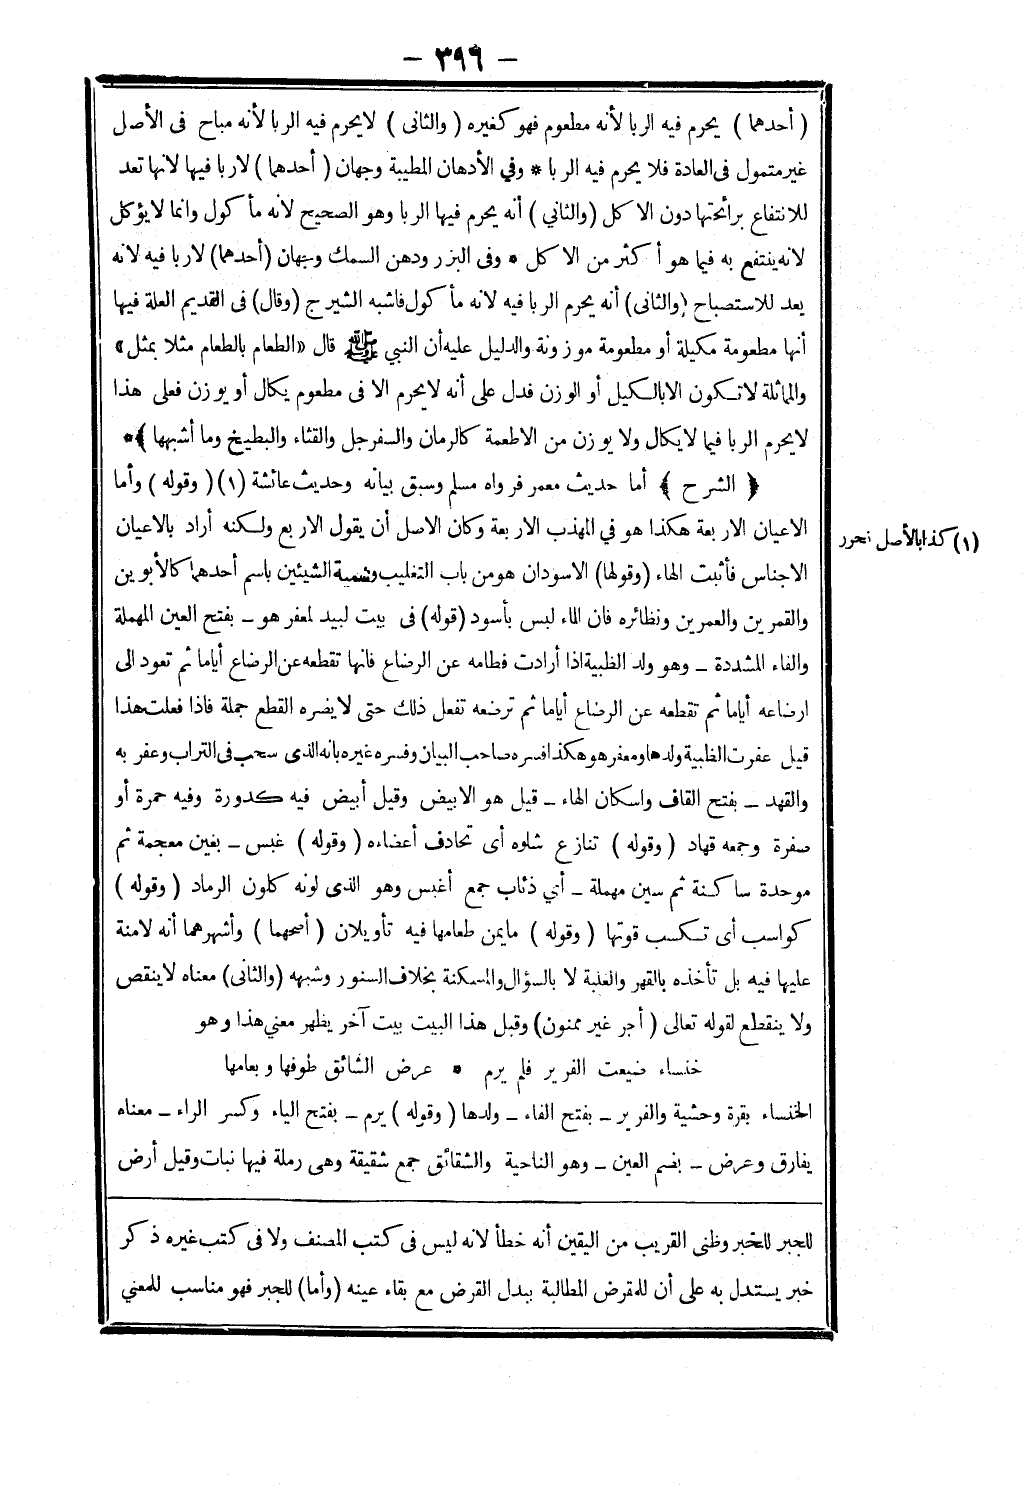 - ٣٩٦ -
( أحدهما ) يحرم فيه الربا لأنه مطعوم فهو كغيره ( والثانى ) لا يحرم فيه الربا لأنه مباح فى الأصل
غير متمول فى العادة فلا يحرم فيه الربا * وفي الأدهان المطيبة وجهان ( أحدهما ) لا ربا فيها لانها تعد
للانتفاع برائحتها دون الاكل (والثاني ) أنه يحرم فيها الربا وهو الصحيح لانه مأكول وانما لا يؤكل
لانه ينتفع به فيما هو أكثر من الاكل * وفى البزر ودهن السمك وجهان (أحدهما) لا ربا فيه لانه
يعد للاستصباح (والثانى) أنه يحرم الربا فيه لانه مأكول فاشبه الشيرج (وقال) فى القديم العلة فيها
أنها مطعومة مكيلة أو مطعومة موزونة والدليل عليه أن النبي ﷺ قال «الطعام بالطعام مثلا بمثل»
والمماثلة لا تكون الا بالكيل أو الوزن فدل على أنه لا يحرم الا فى مطعوم يكال أو يوزن فعلى هذا
لا يحرم الربا فيما لا يكال ولا يوزن من الاطعمة كالرمان والسفرجل والقثاء والبطيخ وما أشبهها ﴾*
﴿ الشرح ﴾ أما حديث معمر فرواه مسلم وسبق بيانه وحديث عائشة (١)( وقوله ) وأما
الاعيان الاربعة هكذا هو في المهذب الاربعة وكان الاصل أن يقول الاربع ولكنه أراد بالاعيان
(١) كذا بالأصل فحرر
الاجناس فأثبت الهاء (وقولها) الاسودان هو من باب التغليب وتسمية الشيئين باسم أحدهما كالأبوين
والقمرين والعمرين ونظائره فان الماء ليس بأسود (قوله) فى بيت لبيد لمعفر هو ــ بفتح العين المهملة
والفاء المشددة ــ وهو ولد الظبية اذا أرادت فطامه عن الرضاع فانها تقطعه عن الرضاع أياما ثم تعود الى
ارضاعه أياما ثم تقطعه عن الرضاع أياما ثم ترضعه تفعل ذلك حتى لا يضره القطع جملة فاذا فعلت هذا
قيل عفرت الظبية ولدها ومعفر هو هكذا فسره صاحب البيان وفسره غيره بانه الذى سحب فى التراب وعفر به
والقهد ــ بفتح القاف واسكان الهاء ــ قيل هو الابيض وقيل أبيض فيه كدورة وفيه حمرة أو
صفرة وجمعه قهاد ( وقوله ) تنازع شلوه أى تجادف أعضاءه ( وقوله ) غبس ــ بغين معجمة ثم
موحدة ساكنة ثم سين مهملة ــ أي ذئاب جمع أغبس وهو الذى لونه كلون الرماد ( وقوله )
كواسب أى تكسب قوتها ( وقوله ) ما يمن طعامها فيه تأويلان ( أصحهما ) وأشهرهما أنه لا منة
عليها فيه بل تأخذه بالقهر والغلبة لا بالسؤال والمسكنة بخلاف السنور وشبهه (والثانى) معناه لا ينقص
ولا ينقطع لقوله تعالى ( أجر غير ممنون) وقبل هذا البيت بيت آخر يظهر معني هذا وهو
خنساء ضيعت الفرير فلم يرم * عرض الشائق طوفها وبعامها
الخنساء بقرة وحشية والفرير ــ بفتح الفاء ــ ولدها ( وقوله ) يرم ــ بفتح الياء وكسر الراء ــ معناه
يفارق وعرض ــ بضم العين ــ وهو الناحية والشقائق جمع شقيقة وهى رملة فيها نبات وقيل أرض
للجبر للخبر وظنى القريب من اليقين أنه خطأ لانه ليس فى كتب المصنف ولا فى كتب غيره ذكر
خبر يستدل به على أن للمقرض المطالبة ببدل القرض مع بقاء عينه (وأما) للجبر فهو مناسب للمعني